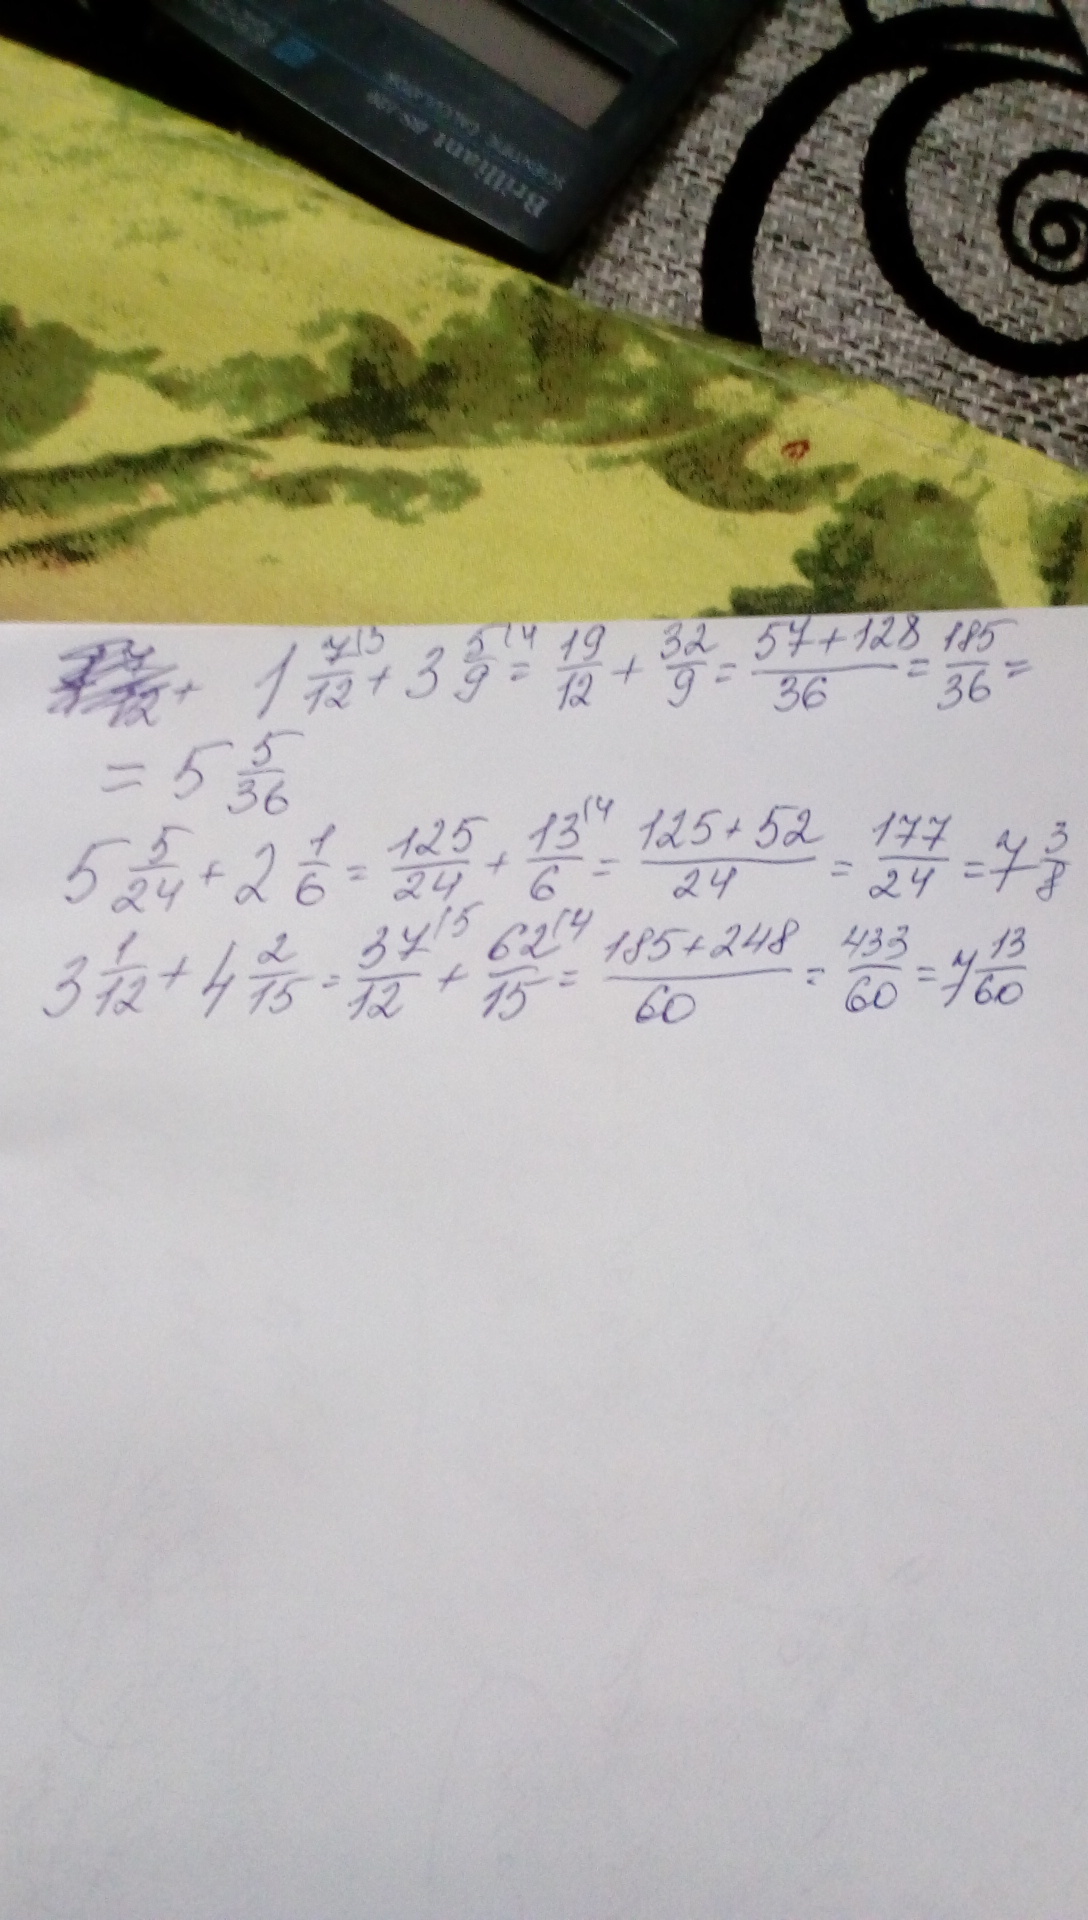 Brilliant
1 7/12 (3 + 3 5/9 (4 = 19/12 + 32/9 = 57+128/36 = 185/36 =
= 5 5/36
5 5/24 + 2 1/6 = 125/24 + 13/6 (4 = 125+52/24 = 177/24 = 7 3/8
3 1/12 + 4 2/15 = 37/12 (5 + 62/15 (4 = 185+248/60 = 433/60 = 7 13/60